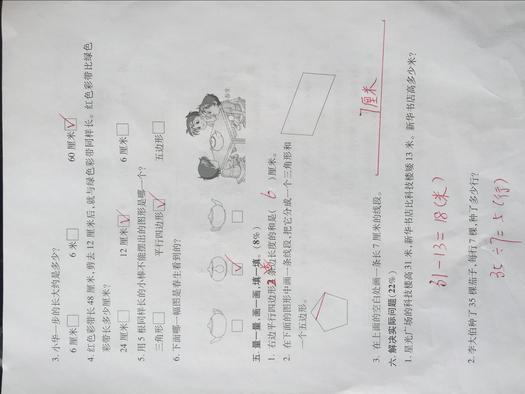 3. 小华一步的长大约是多少?
6 厘米□ 6 米□ 60 厘米☑
4. 红色彩带长 48 厘米,剪去 12 厘米后,就与绿色彩带同样长。红色彩带比绿色
彩带长多少厘米?
24 厘米□ 12 厘米☑ 6 厘米□
5. 用 5 根同样长的小棒不能摆出的图形是哪一个?
三角形□ 平行四边形☑ 五边形□
6. 下面哪一幅图是春生看到的?
五、量一量,画一画,填一填。(8%)
1. 右边平行四边形2条边长度的和是( 6 )厘米。
2. 在下面的图形中画一条线段,把它分成一个三角形和
一个五边形。
7厘米
3. 在上面的空白处画一条长 7 厘米的线段。
六、解决实际问题(22%)
1. 星光广场的科技楼高 31 米,新华书店比科技楼矮 13 米。新华书店高多少米?
31-13=18(米)
2. 李大伯种了 35 棵茄子,每行 7 棵,种了多少行?
35÷7=5(行)